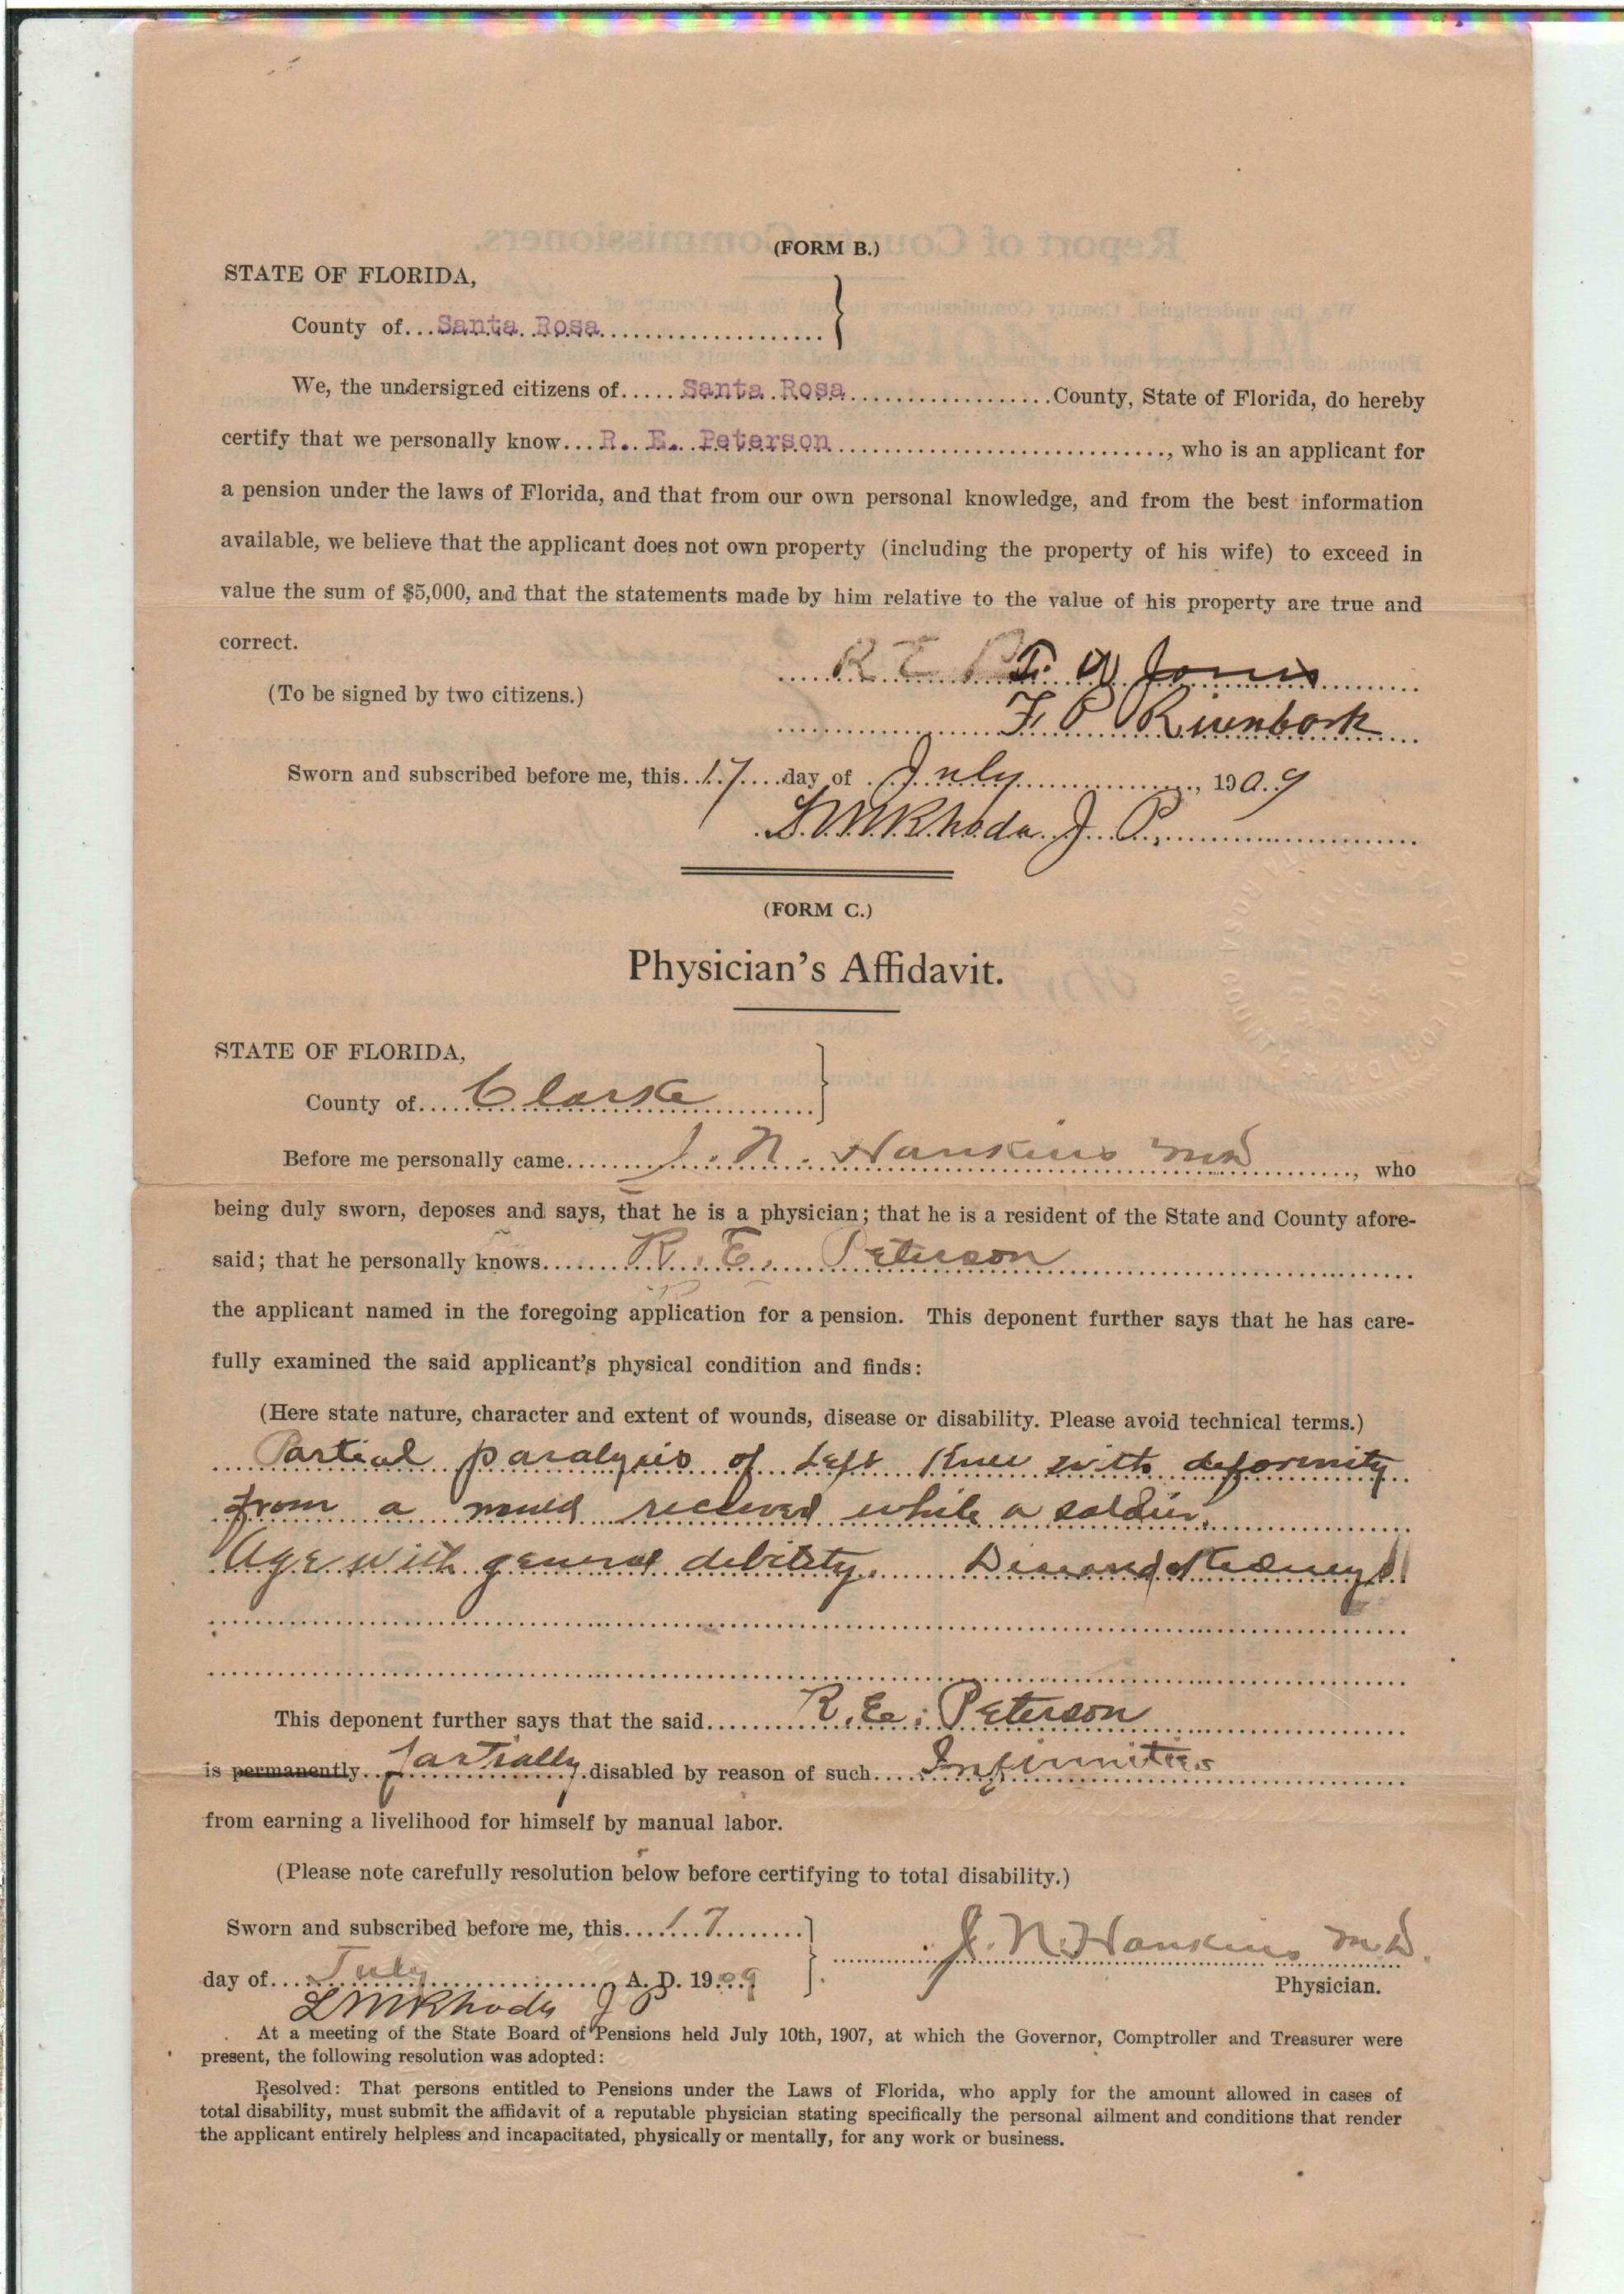 (FORM B.)
STATE OF FLORIDA,
County of...Santa Rosa
We, the undersigned citizens of.....Santa Rosa.....County, State of Florida, do hereby
certify that we personally know...R. E. Peterson....., who is an applicant for
a pension under the laws of Florida, and that from our own personal knowledge, and from the best information
available, we believe that the applicant does not own property (including the property of his wife) to exceed in
value the sum of $5,000, and that the statements made by him relative to the value of his property are true and
correct.
R E Jones
(To be signed by two citizens.)
F. P.
Sworn and subscribed before me, this..17....day of..July....., 1909
L M Rhoda J. P.
(FORM C.)
Physician's Affidavit.
STATE OF FLORIDA,
County of.....Clarke
Before me personally came.....J. N. Hankins MD....., who
being duly sworn, deposes and says, that he is a physician; that he is a resident of the State and County afore-
said; that he personally knows.....R. E. Peterson
the applicant named in the foregoing application for a pension. This deponent further says that he has care-
fully examined the said applicant's physical condition and finds:
(Here state nature, character and extent of wounds, disease or disability. Please avoid technical terms.)
Partial paralysis of Left Knee with deformity
from a received while a soldier.
Age with general debility. Kidneys
This deponent further says that the said.....R. E. Peterson
is permanently..partially..disabled by reason of such....Infirmities
from earning a livelihood for himself by manual labor.
(Please note carefully resolution below before certifying to total disability.)
Sworn and subscribed before me, this....17
J. N. Hankins M.D.
day of....July.....A. D. 1909
Physician.
L M Rhoda J P
At a meeting of the State Board of Pensions held July 10th, 1907, at which the Governor, Comptroller and Treasurer were
present, the following resolution was adopted:
Resolved: That persons entitled to Pensions under the Laws of Florida, who apply for the amount allowed in cases of
total disability, must submit the affidavit of a reputable physician stating specifically the personal ailment and conditions that render
the applicant entirely helpless and incapacitated, physically or mentally, for any work or business.